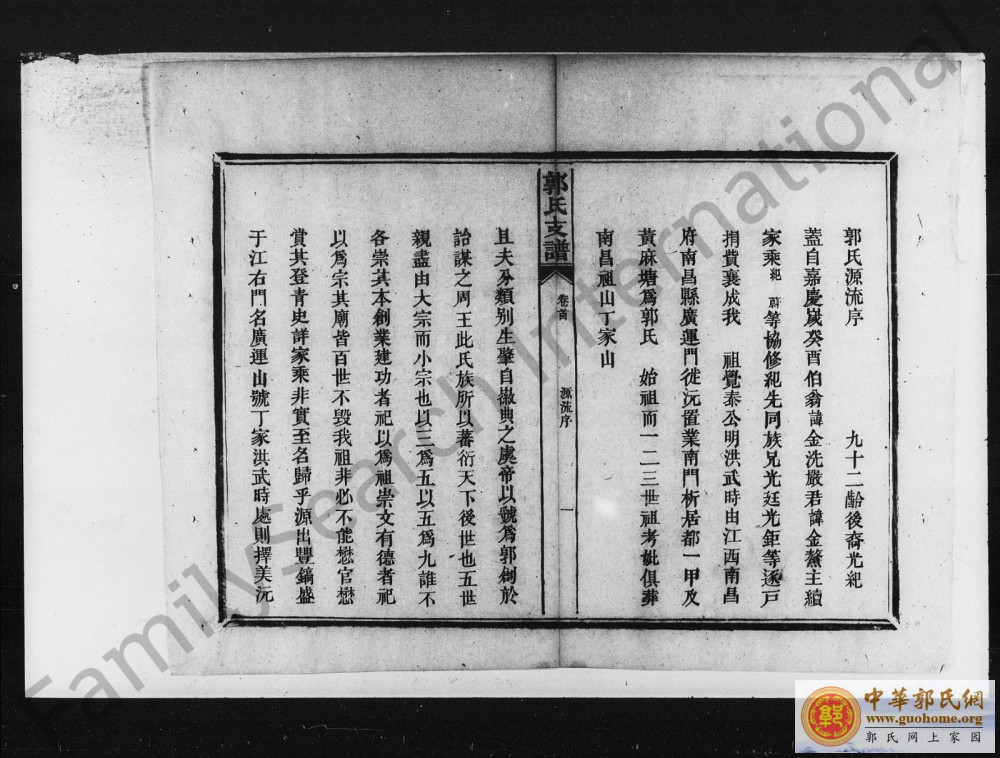 郭氏源流序 九十二齡後裔光紀
蓋自嘉慶歲癸酉伯翁諱金洗嚴君諱金鰲主續
家乘紀 蔚等協修紀先同族兄光廷光鉅等逐戶
捐費襄成我 祖覺泰公明洪武時由江西南昌
府南昌縣廣運門徙沅置業南門析居都一甲及
黃麻塘爲郭氏 始祖而一二三世祖考妣俱葬
南昌祖山丁家山
郭氏支譜
卷首
源流序
一
且夫分類别生肇自徽典之虞帝以號爲郭創於
詒謀之周王此氏族所以蕃衍天下後世也五世
親盡由大宗而小宗也以三爲五以五爲九誰不
各崇其本創業建功者祀以爲祖崇文有德者祀
以爲宗其廟皆百世不毀我祖非必不能懋官懋
賞其登青史詳家乘非實至名歸乎源出豐鎬盛
于江右門名廣運山號丁家洪武時處則擇美沅
FamilySearch International
中華郭氏網
www.guohome.org
郭氏网上家园